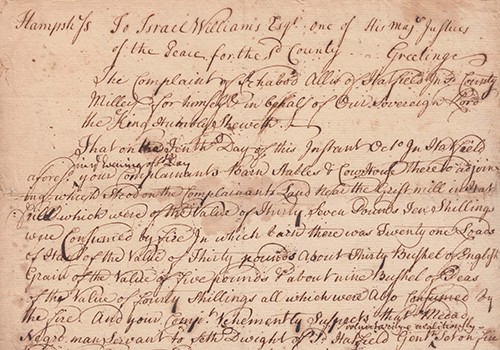 Hampsh ss To Israel Williams Esqr one of His Majs Justices
of the Peace for the sd County Greeting
The Complaint of Ichabod Allis of Hatfield In sd County
Miller for himself & in behalf of Our Sovereign Lord
the King Humbly Sheweth
That on the Tenth Day of this Instant Octor In Hatfield
in ye Evening of sd Day
aforesd your Complainants Barn Stables & Cowhouse there to adjoin
ing, which Stood on the Complainants Land Near the Grist mill in
mill which were of the Value of Thirty Seven Pounds Ten Shillings
were Consumed by fire In which barn there was Twenty one Loads
of Hay of the Value of Thirty pounds About Thirty Bushel of English
Grain of the Value of five pounds & about nine Bushel of Peas
of the Value of Fourty Shillings all which were Also Consumed by
the fire. And your Compt Vehemently Suspects that Medad
voluntarily
Negro man Servant to Seth Dwight of sd Hatfield Gent Set on fire